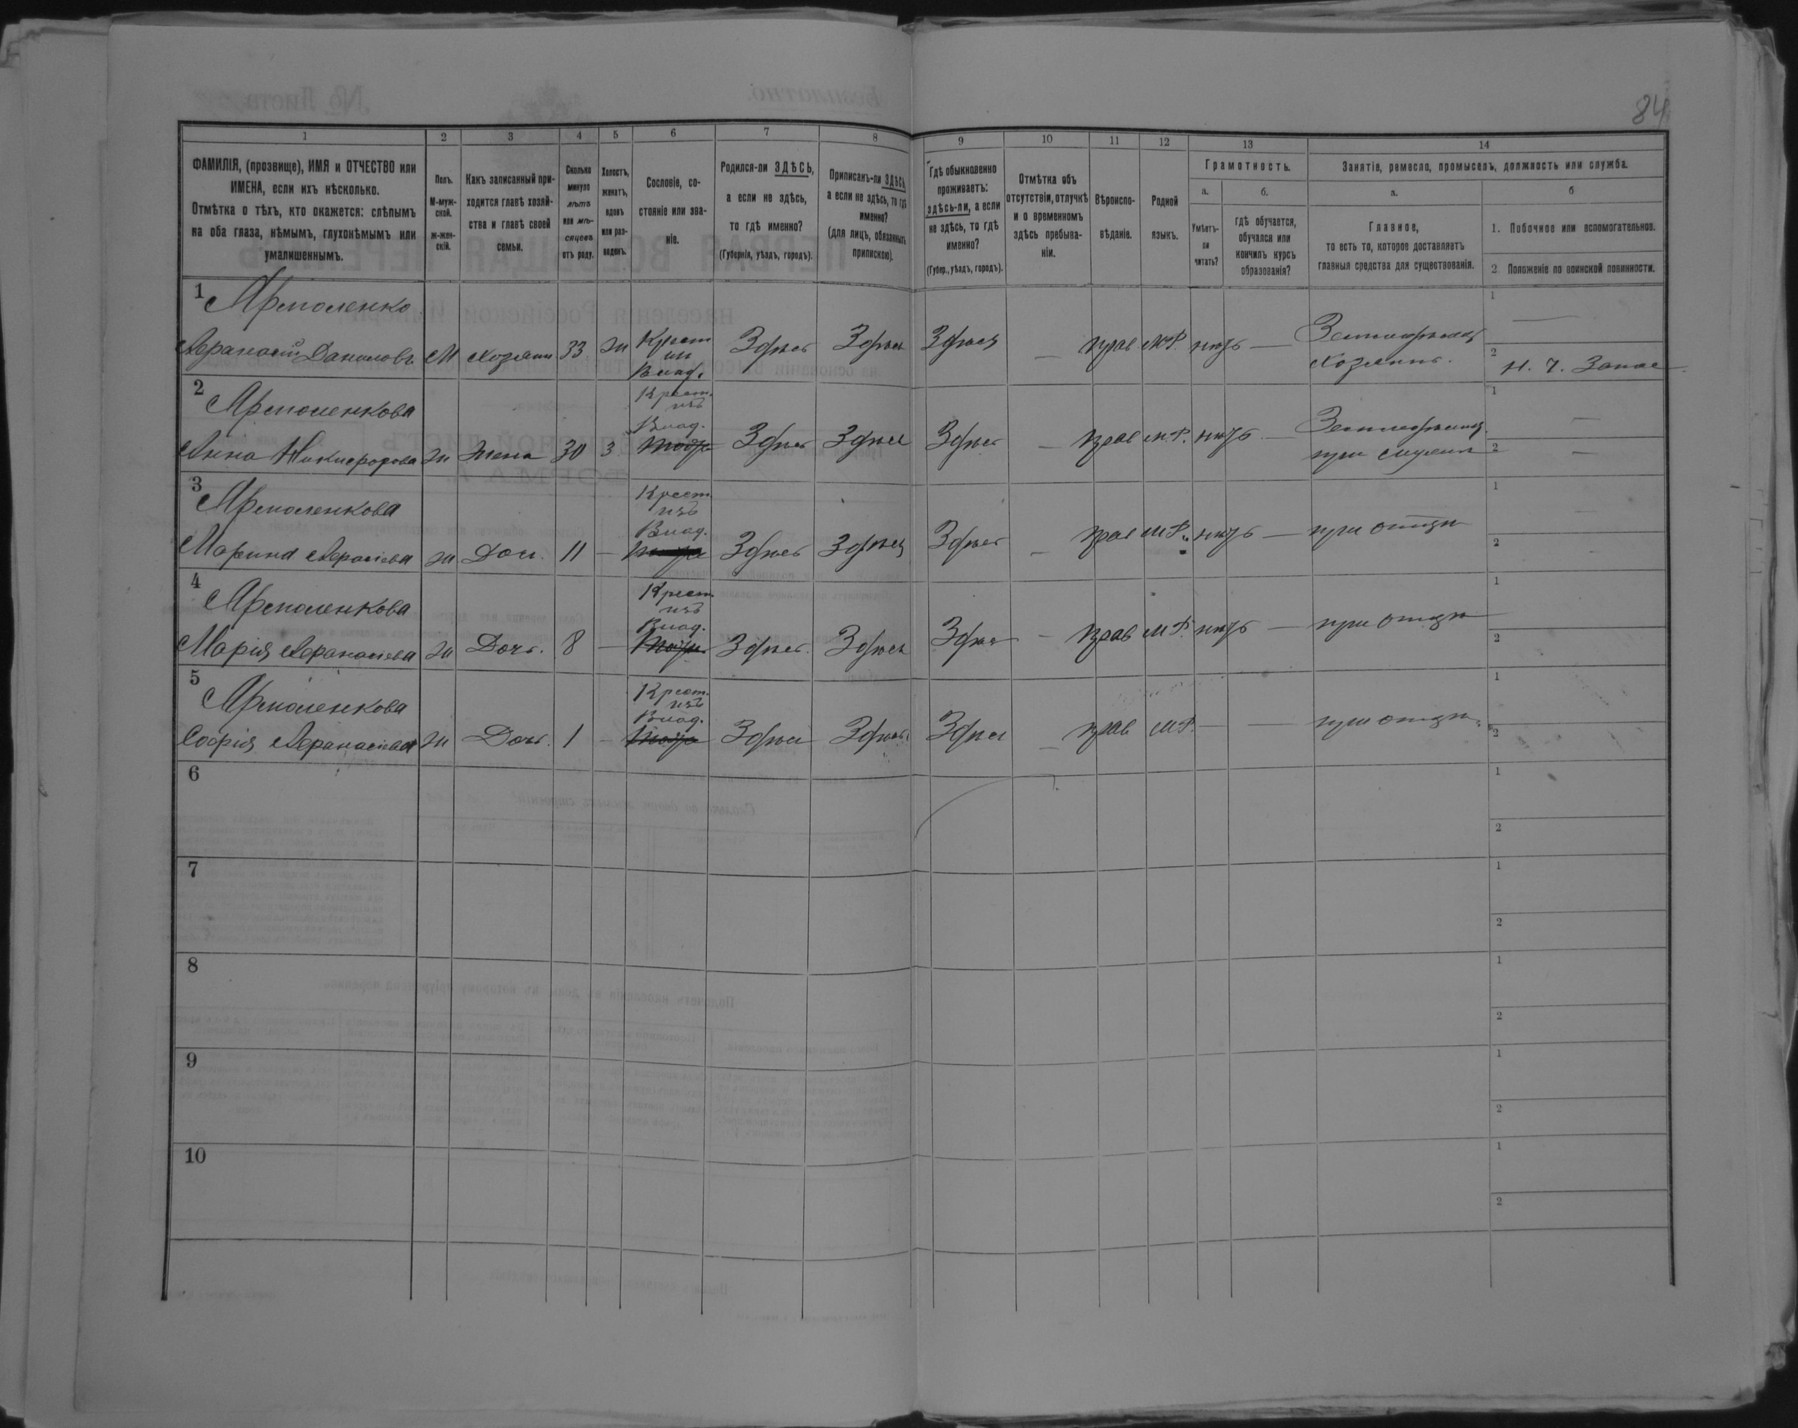 84
1 2 3 4 5 6 7 8 9 10 11 12 13 14
ФАМИЛІЯ, (прозвище), ИМЯ и ОТЧЕСТВО или
ИМЕНА, если ихъ нѣсколько.
Отмѣтка о тѣхъ, кто окажется: слѣпымъ
на оба глаза, нѣмымъ, глухонѣмымъ или
умалишеннымъ.
Полъ.
М-муж-
ской.
ж-жен-
скій.
Какъ записанный при-
ходится главѣ хозяй-
ства и главѣ своей
семьи.
Сколько
минуло
лѣтъ
или мѣ-
сяцевъ
отъ роду.
Холостъ,
женатъ,
вдовъ
или раз-
веденъ.
Сословіе, со-
стояніе или зва-
ніе.
Родился-ли ЗДѢСЬ,
а если не здѣсь,
то гдѣ именно?
(Губернія, уѣздъ, городъ).
Приписанъ-ли ЗДѢСЬ,
а если не здѣсь, то гдѣ
именно?
(для лицъ, обязанныхъ
припискою).
Гдѣ обыкновенно
проживаетъ:
здѣсь-ли, а если
не здѣсь, то гдѣ
именно?
(Губер., уѣздъ, городъ).
Отмѣтка объ
отсутствіи, отлучкѣ
и о временномъ
здѣсь пребыва-
ніи.
Вѣроиспо-
вѣданіе.
Родной
языкъ.
Грамотность.
а.
Умѣетъ-
ли
читать?
б.
гдѣ обучается,
обучался или
кончилъ курсъ
образованія?
Занятіе, ремесло, промыселъ, должность или служба.
а.
Главное,
то есть то, которое доставляетъ
главныя средства для существованія.
б
1. Побочное или вспомогательное.
2. Положеніе по воинской повинности.
1 Ярмоленко
Афанасій Даниловъ М хозяинъ 33 ж Крест из Влад. Здѣсь Здѣсь Здѣсь — прав М.Р. нѣтъ — Земледѣлец хозяинъ. 1 — 2 Н. Ч. Запас
2 Ярмоленкова
Анна Никифорова ж жена 30 з Крест. изъ Влад. Здѣсь Здѣсь Здѣсь — прав М.Р. нѣтъ — Земледѣлец при мужѣ 1 — 2 —
3 Ярмоленкова
Марина Афанасіева ж Доч. 11 — Крест изъ Влад. Здѣсь Здѣсь Здѣсь — прав М.Р. нѣтъ — при отцѣ 1 2
4 Ярмоленкова
Марія Афанасіева ж Доч. 8 — Крест изъ Влад. Здѣсь Здѣсь Здѣсь — прав М.Р. нѣтъ — при отцѣ 1 2
5 Ярмоленкова
Софія Афанасіева ж Доч. 1 — Крест. изъ Влад. Здѣсь Здѣсь Здѣсь — прав М.Р. — — при отцѣ 1 2
6 1 2
7 1 2
8 1 2
9 1 2
10 1 2